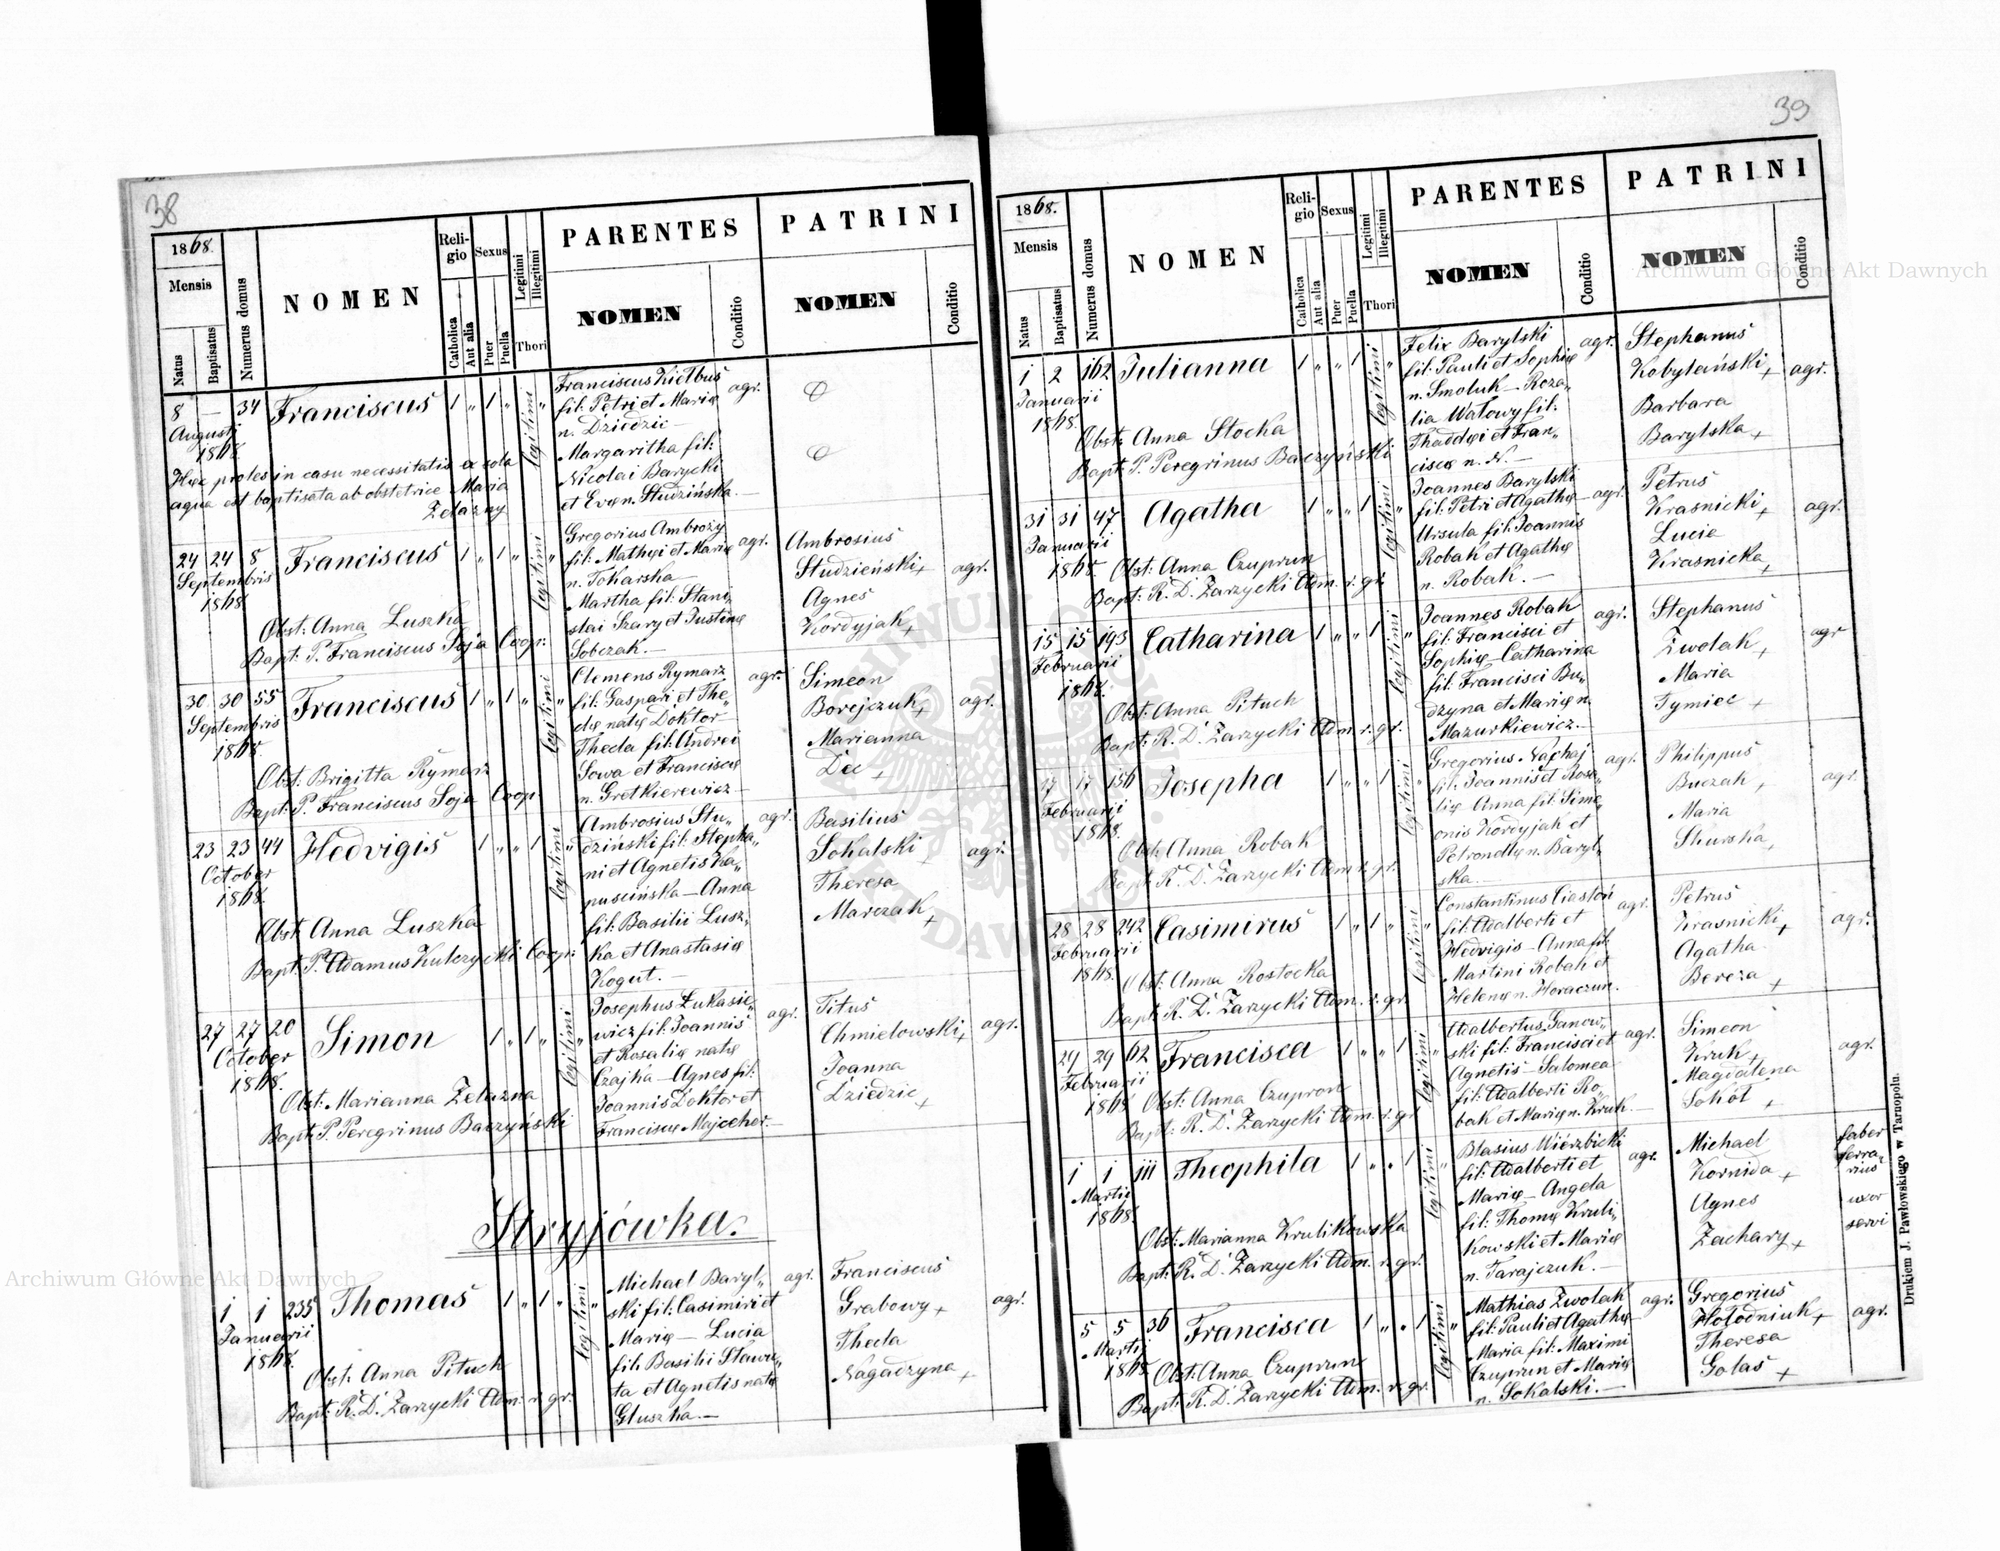 38
1868.
Mensis
Natus
Baptisatus
Numerus domus
NOMEN
Religio
Catholica
Aut alia
Sexus
Puer
Puella
Legitimi
Illegitimi
Thori
PARENTES
NOMEN
Conditio
PATRINI
NOMEN
Conditio
8 — 34 Franciscus 1 „ 1 „ legitimi „
Augusti
1868.
Hæc proles in casu necessitatis ex sola
aqua est baptisata ab obstetrice Maria
Żelazny
Franciscus Kiełbus agr.
fil: Petri et Mariæ
n. Dziedzic —
Margaritha fil:
Nicolai Barycki
et Evæ n. Studzińska. —
24 24 8 Franciscus 1 „ 1 „ legitimi „
Septembris
1868.
Obst: Anna Luszka
Bapt: P. Franciscus Soja Coop:
Gregorius Ambroży agr.
fil: Mathæi et Mariæ
n. Tokarska —
Martha fil: Stani„
slai Szary et Justinæ
Sobczak. —
Ambrosius
Studzieński + agr.
Agnes
Kordyjak +
30 30 55 Franciscus 1 „ 1 „ legitimi „
Septembris
1868.
Obst: Brigitta Rymarz
Bapt: P. Franciscus Soja Coop:
Clemens Rymarz agr.
fil: Gaspari et The„
clæ natæ Doktor —
Thecla fil: Andrei
Sowa et Franciscæ
n. Gretkierewicz —
Simeon
Borejczuk + agr.
Marianna
Dec +
23 23 44 Hedvigis 1 „ „ 1 legitimi „
October
1868.
Obst: Anna Luszka
Bapt: P. Adamus Kulczycki Coop:
Ambrosius Stu„ agr.
dziński fil: Stepha„
ni et Agnetis Ka„
puscińska — Anna
fil: Basilii Lusz„
ka et Anastasiæ
Kogut. —
Basilius
Sokalski agr.
Theresa
Marczak +
27 27 20 Simon 1 „ 1 „ legitimi „
October
1868.
Obst: Marianna Żelazna
Bapt: P. Peregrinus Baczyński
Josephus Łukasie„ agr.
wicz fil: Joannis
et Rosaliæ natæ
Czajka — Agnes fil:
Joannis Doktor et
Franciscæ Majcher. —
Titus
Chmielowski + agr.
Joanna
Dziedzic +
Stryjówka.
1 1 235 Thomas 1 „ 1 „ legitimi „
Januarii
1868.
Obst: Anna Pituch
Bapt: R. D. Zarzycki Adm. r. gr.
Michael Baryl„ agr.
ski fil: Casimiri et
Mariæ — Lucia
fil: Basilii Stawu„
ta et Agnetis natæ
Głuszka. —
Franciscus
Grabowy + agr.
Thecla
Nagadzyna +
39
1868.
Mensis
Natus
Baptisatus
Numerus domus
NOMEN
Religio
Catholica
Aut alia
Sexus
Puer
Puella
Legitimi
Illegitimi
Thori
PARENTES
NOMEN
Conditio
PATRINI
NOMEN
Conditio
1 2 162 Julianna 1 „ „ 1 legitimi „
Januarii
1868.
Obst: Anna Stocka
Bapt: P. Peregrinus Baczyński
Felix Barylski agr.
fil: Pauli et Sophiæ
n. Smoluk — Roza„
lia Wałowy fil:
Thaddæi et Fran„
ciscæ n. N. —
Stephanus
Kobylański + agr.
Barbara
Barylska +
31 31 47 Agatha 1 „ „ 1 legitimi „
Januarii
1868.
Obst: Anna Czuprun
Bapt: R. D. Zarzycki Adm. r. gr.
Joannes Barylski agr.
fil: Petri et Agathæ
Ursula fil: Joannis
Robak et Agathæ
n. Robak. —
Petrus
Krasnicki + agr.
Lucia
Krasnicka +
15 15 193 Catharina 1 „ „ 1 legitimi „
Februarii
1868.
Obst: Anna Pituch
Bapt: R. D. Zarzycki Adm. r. gr.
Joannes Robak agr.
fil: Francisci et
Sophiæ — Catharina
fil: Francisci Bu„
dzyna et Mariæ n.
Mazurkiewicz. —
Stephanus
Zwolak + agr
Maria
Tymiec +
17 17 156 Josepha 1 „ „ 1 legitimi „
Februarii
1868.
Obst: Anna Robak
Bapt: R. D. Zarzycki Adm. r. gr.
Gregorius Nachaj agr.
fil: Joannis et Rosa„
liæ Anna fil: Sime„
onis Kordyjak et
Petronellæ n. Baryl„
ska —
Philippus
Buczak + agr.
Maria
Skurska +
28 28 242 Casimirus 1 „ 1 „ legitimi „
Februarii
1868.
Obst: Anna Rostocka
Bapt: R. D. Zarzycki Adm. r. gr.
Constantinus Ciastoń agr.
fil: Adalberti et
Hedvigis — Anna fil:
Martini Robak et
Helenæ n. Horaczun. —
Petrus
Krasnicki + agr.
Agatha
Bereza +
29 29 62 Francisca 1 „ „ 1 legitimi „
Februarii
1868.
Obst: Anna Czupron
Bapt: R. D. Zarzycki Adm. r. gr.
Adalbertus Janow„ agr.
ski fil: Francisci et
Agnetis — Salomea
fil: Adalberti Ro„
bak et Mariæ n. Kruk —
Simeon
Kruk + agr.
Magdalena
Sokół +
1 1 111 Theophila 1 „ „ 1 legitimi „
Martii
1868.
Obst: Marianna Krulikowska
Bapt: R. D. Zarzycki Adm. r. gr.
Blasius Wierzbicki agr.
fil: Adalberti et
Mariæ — Angela
fil: Thomæ Kruli„
kowski et Mariæ
n. Tarajczuk. —
Michael faber
Kornida + ferra„
rius
Agnes uxor
Zachary + servi
5 5 36 Francisca 1 „ „ 1 legitimi „
Martij
1868.
Obst: Anna Czuprun
Bapt: R. D. Zarzycki Adm. r. gr.
Mathias Zwolak agr.
fil: Pauli et Agathæ
Maria fil: Maximi
Czuprun et Mariæ
n. Sokalski. —
Gregorius
Hołodniuk + agr.
Theresa
Golas +
Drukiem J. Pawłowskiego w Tarnopolu.
Archiwum Główne Akt Dawnych
Archiwum Główne Akt Dawnych
ARCHIWUM GŁÓWNE AKT DAWNYCH